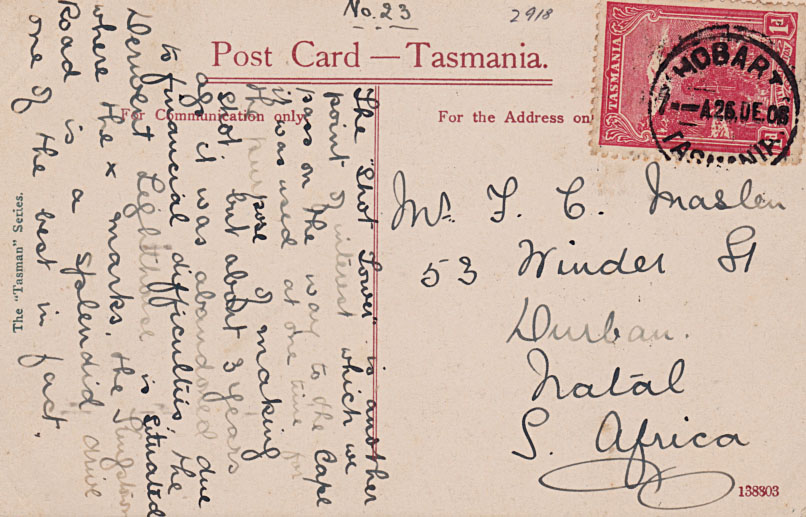 No. 23
2918
Post Card — Tasmania.
For Communication only
For the Address on
TASMANIA
HOBART
A 26.DE.06
TASMANIA
The "Shot Tower" is another
point of interest which we
pass on the way to the Cape
it was used at one time for
the purpose of making
shot. but about 3 years
ago it was abandoned due
to financial difficulties. The
Derwent Lighthouse is situated
where the x marks. the Kingston
Road is a splendid drive
one of the best in fact.
Mr. F. C. Maslen
53 Winder St
Durban.
Natal
S. Africa
The "Tasman" Series.
138803